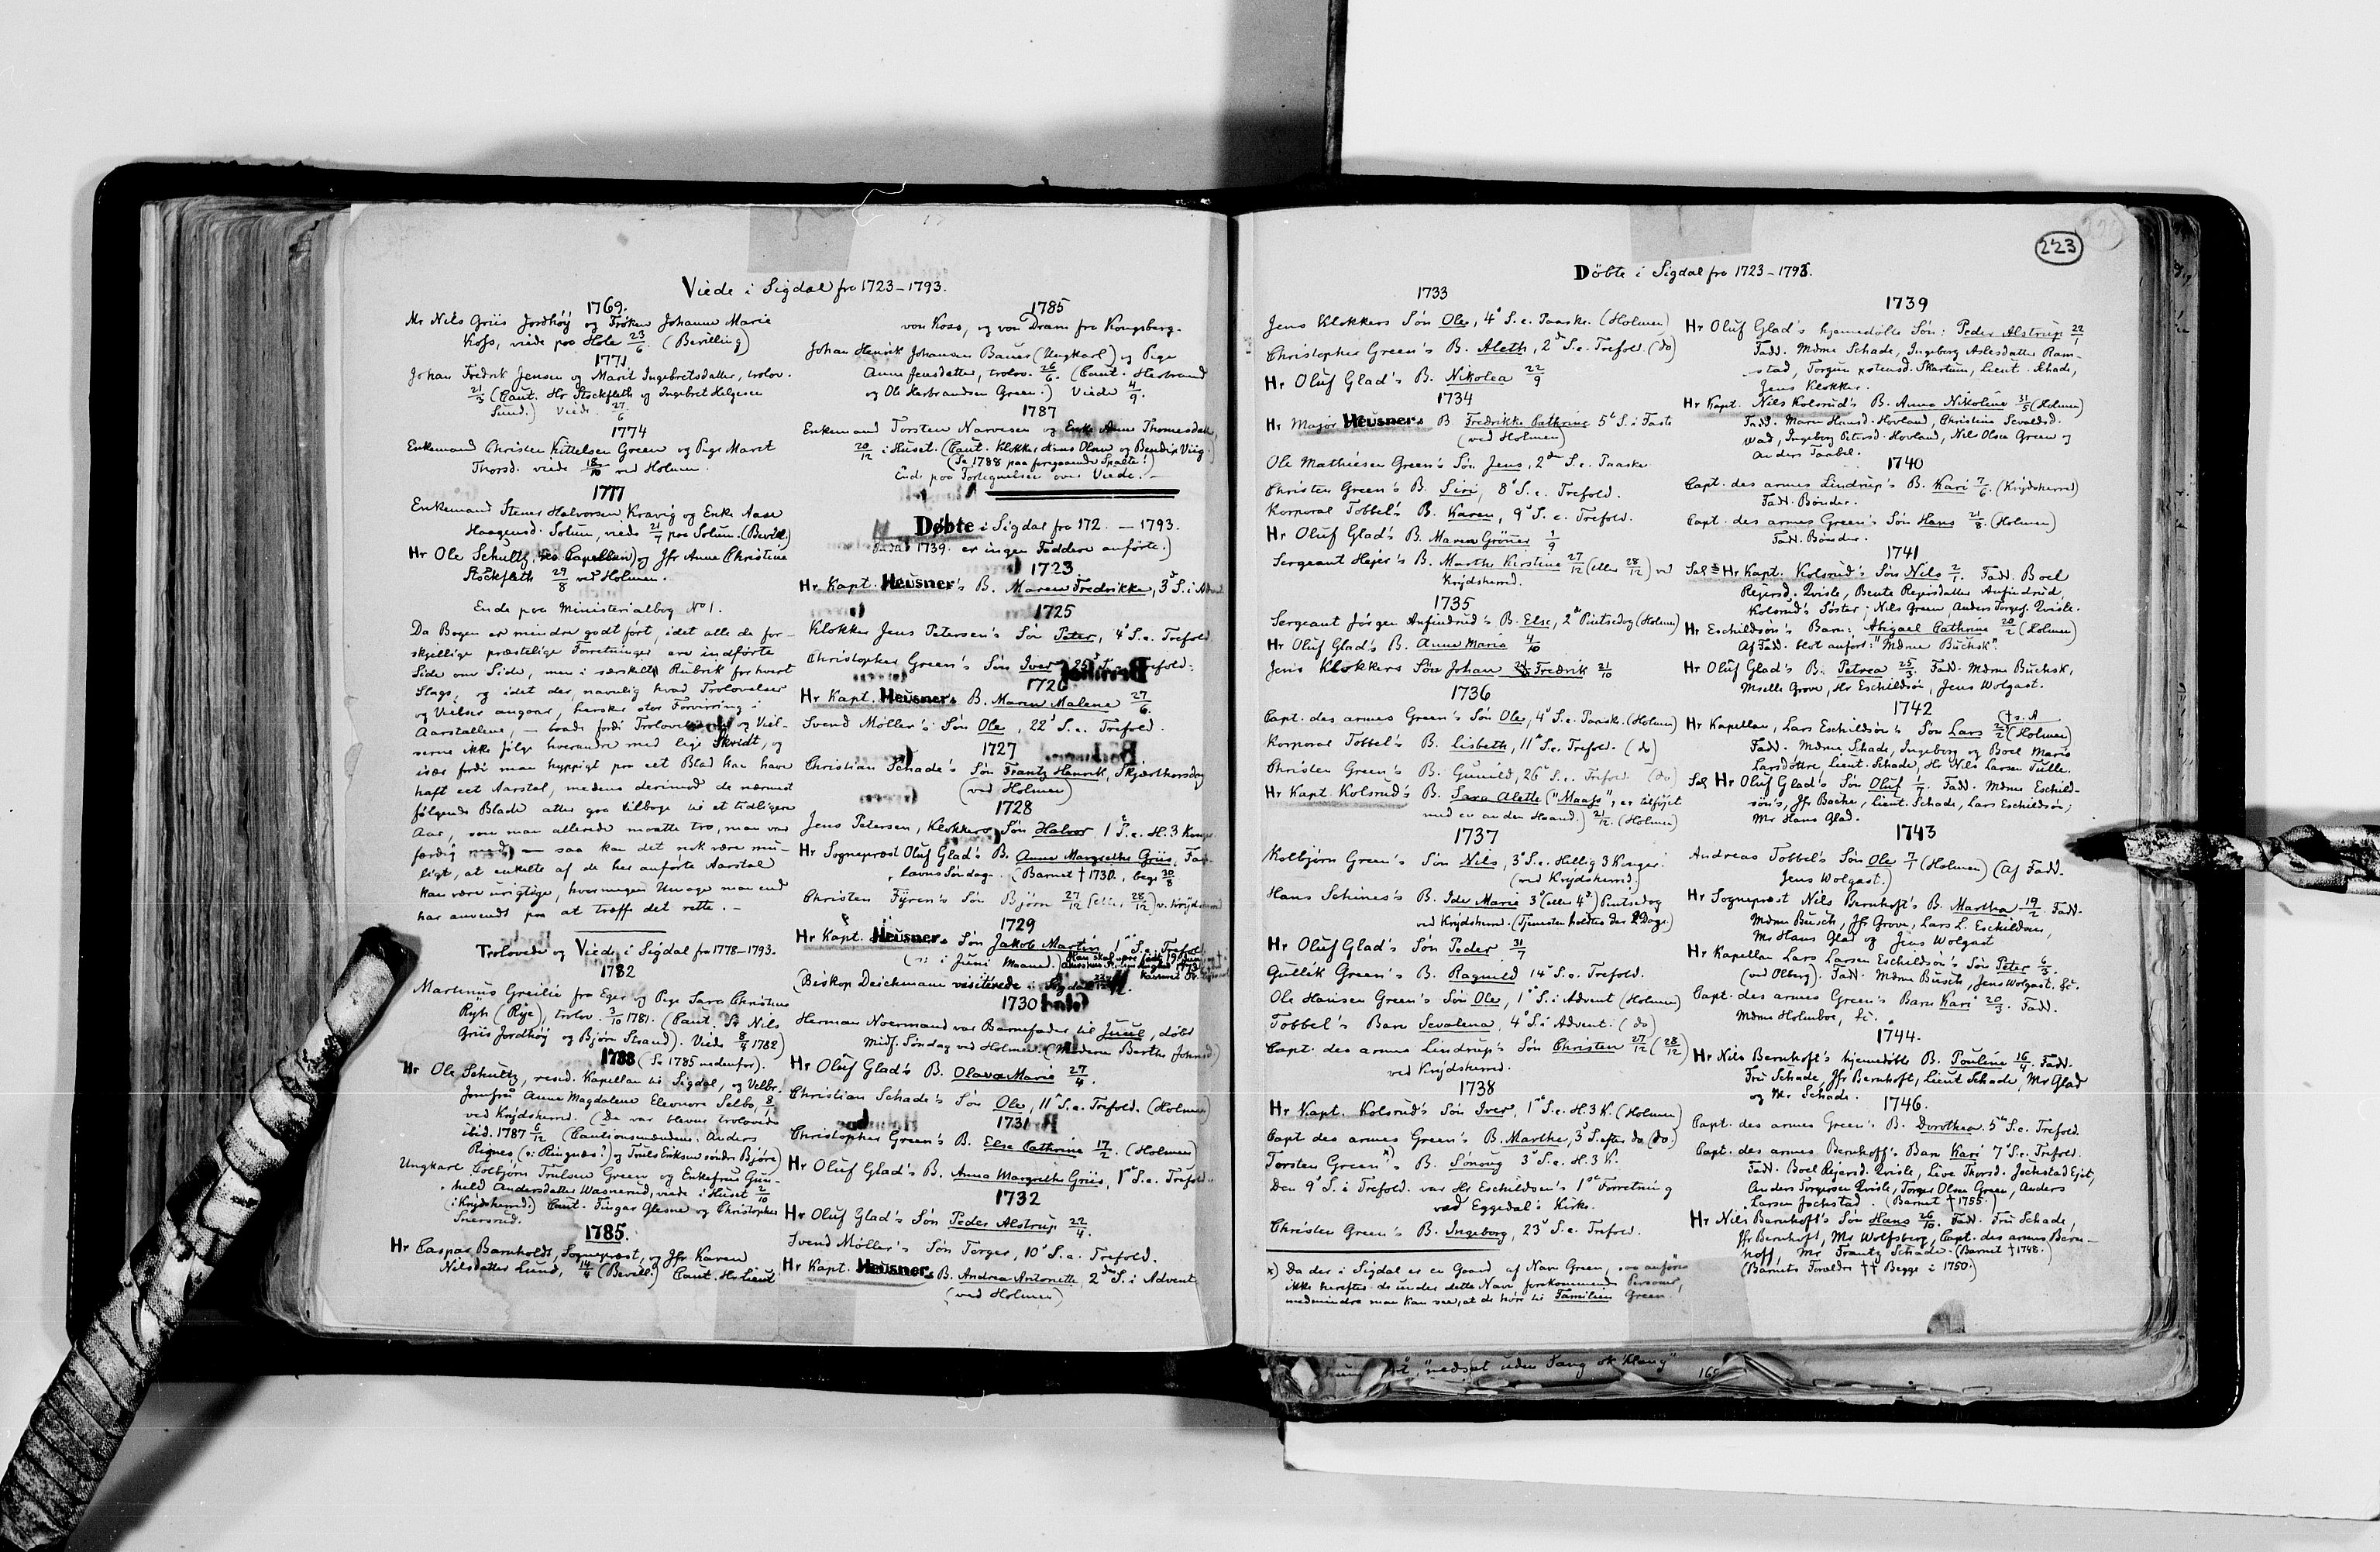 Viede i Sigdal fra 1723–1793.
1769.
Mr Nils Griis Jordhöÿ og Frøken Johanne Marie
Koss, viede paa Hole 23/6. (Bevilling)
1771
Johan Fredrik Jensen og Marit Ingebretsdatter, trolov.
21/3 (Caut. Hr Stockfleth og Ingebret Helgesen
Lund.) Viede 27/6
1774
Enkemand Christen Kittelsen Green og Pige Marit
Thorsd. viede 18/10 ved Holmen.
1777
Enkemand Stener Halvorsen Kravig og Enke Aase
Haagensd. Solum, viede 21/7 paa Solum. (Bevill.)
Hr Ole Schultz, (res Capellan) og Jfr Anne Christine
Stockfleth 29/8 ved Holmen.
Ende paa Ministerialbog No 1.
Da Bogen er mindre godt ført, idet alle de for-
skjellige præstelige Forretninger ere indførte
Side om Side, men i særskelt Rubrik for hvert
Slags, og idet der, navnlig hvad Trolovelser
og Vielser angaar, hersker stor Forvirring i
Aarstallene, — baade fordi Trolovelserne og Viel-
serne ikke følge hverandre med lige Skridt, og
især fordi man hyppigt paa eet Blad kan have
haft eet Aarstal, medens derimod de nærmest
følgende Blade atter gaa tilbage til et tidligere
Aar, som man allerede maatte tro, man var
færdig med, — saa kan det nok være mu-
ligt, at enkelte af de her anførte Aarstal
kan være urigtige, hvormegen Umage man end
har anvendt paa at træffe det rette. –
Trolovede og Viede i Sigdal fra 1778–1793.
1782
Martinus Greilie fra Eger og Pige Sara Christine
Rÿh (Rije), trolov. 3/10 1781. (Caut. Sr Nils
Griis Jordhöÿ og Bjørn Strand). Viede 8/4 1782)
1788 (Se 1785 nedenfor).
Hr Ole Schultz, resid. Kapellan til Sigdal, og Velbr.
Jomfru Anna Magdalene Eleonore Selbo, 8/1
ved Krÿdsherred. (De var blevne trolovede
ibid. 1787 6/12 (Cautionsmændene: Anders
Rignes, (ɔ: Ringnæs?) og Truls Eriksen søndre Bjøre)
Ungkarl Colbjørn Trulsen Green og Enkefrue Gun-
hild Andersdatter Wasnerud, viede i Huset 2/10
(i Krÿdsherred.) Caut. Fingar Glesne og Christopher
Snersrud.
1785.
Hr Caspar Barnholdt, Sognepræst, og Jfr Karen
Nilsdatter Lund, 14/4 (Bevill.) Caut. Hr Lieut
1785
von Koss, og von Dram fra Kongsberg.
Johan Henrik Johansen Bauer (Ungkarl) og Pige
Anne Jensdatter, trolov. 26/6. (Caut. Herbrand
og Ole Herbrandsen Green.) Viede 4/9.
1787
Enkemand Torsten Narvesen og Enke Anne Thomesdatt.
20/12 i Huset. (Caut. Klokker Arne Olsen og Bendix Viig.)
(Se 1788 paa foregaaende Spalte!)
Ende paa Fortegnelsen over Viede. –
Døbte i Sigdal fra 172. — 1793.
(Indtil 1739 er ingen Faddere anførte.)
1723
Hr Kapt. Heusner's B. Maren Fredrikke, 3d S. i Advent
1725
Klokker Jens Petersen's Søn Peter, 4d S. e. Trefold
Christopher Green's Søn Iver 25d S. e. Trefold.
1726
Hr Kapt. Heusners B. Maren Malene 27/6.
Svend Møller's Søn Ole, 22d S. e. Trefold.
1727
Christian Schade's Søn Frantz Henrik, Skjærthorsdag
(ved Holmen)
1728
Jens Petersen, Klokkers Søn Halvor 1d S. e. H. 3 Konger
Hr Sognepræst Oluf Glad's B. Anne Margrethe Griis, Fast-
lavns Søndag. (Barnet † 1730, begr. 30/8
Christen Fÿren's Søn Bjørn 27/12 (eller 28/12) v. Krÿdsherred
1729
Hr Kapt. Heusners Søn Jakob Martin 1d S. e. Trefold
(ɔ: i Juni Maaned.)
(Biskop Deichmann visiterede i Sigdal
1730
Herman Noermand var Barnefader til Juul, døbt
Midf. Søndag ved Holmen (Moderen Berthe Johnsd)
Hr Oluf Glad's B. Olava Marie 27/4.
Christian Schade's Søn Ole, 11d S. e. Trefold. (Holmen)
1731
Christopher Green's B. Else Cathrine 17/2. (Holmen)
Hr Oluf Glad's B. Anna Margrethe Griis, 1d S. e. Trefold.
1732
Hr Oluf Glad's Søn Peder Alstrup 22/4.
Svend Møller's Søn Torger, 10d S. e. Trefold.
Hr Kapt. Heusners B. Andrea Antonette, 2den S. i Advent
(ved Holmen)
223
Döbte i Sigdal fra 1723–1793.
1733
Jens Klokkers Søn Ole, 4d S. e. Paaske. (Holmen)
Christopher Green's B. Aleth, 2d S. e. Trefold (do)
Hr Oluf Glad's B. Nikolea 22/9
1734
Hr Major Heusners B Fredrikke Cathrine 5d S. i Faste
(ved Holmen)
Ole Mathiesen Green's Søn Jens, 2den S. e. Paaske.
Christen Green's B. Siri, 8d S. e. Trefold.
Korporal Tobbel's B. Karen, 9d S. e. Trefold.
Hr Oluf Glad's B. Maren Gröner 1/9
Sergeant Hejer's B. Marthe Kirstine 27/12 (eller 28/12) ved
Krÿdsherred.
1735
Sergeant Jörgen Anfindrud's B. Else, 2d Pintsedag (Holmen)
Hr Oluf Glad's B. Anne Maria 4/10
Jens Klokkers Søn Johan Fredrik 21/10
1736
Capt. des armes Green's Søn Ole, 4d S. e. Paaske. (Holmen)
Korporal Tobbel's B. Lisbeth, 11d S. e. Trefold. (do)
Christen Green's B. Gunild, 26d S. e. Trefold (do)
Hr Kapt. Kolsrud's B. Sara Alette ("Maass", er tilføjet
med en anden Haand.) 21/12. (Holmen)
1737
Kolbjörn Green's Søn Nils, 3d S. e. Hellig 3 Konger.
(ved Krÿdsherred)
Hans Schines's B. Ide Marie 3d (eller 4d) Pintsedag
ved Krÿdsherred. (Tjenesten holdtes der 2 Dage.)
Hr Oluf Glad's Søn Peder 31/7
Gullik Green's B. Ragnild 14d S. e. Trefold.
Ole Hansen Green's Søn Ole, 1d S. i Advent (Holmen)
Tobbel's Barn Sevalena, 4d S. i Advent. (do)
Capt. des armes Lindrup's Søn Christen 27/12 (28/12)
ved Krÿdsherred.
1738
Hr Kapt. Kolsrud's Søn Iver, 1d S. e. H. 3 K. (Holmen)
Capt des armes Green's B. Marthe, 3d S. efter do (do.)
Torsten Green's x) B. Sønoug 3d S. e. H. 3 K.
Den 9d S. i Trefold. var Hr Eschildsen's 1ste Forretning
ved Eggedal's Kirke.
Christen Green's B. Ingeborg, 23d S. e. Trefold.
x) Da der i Sigdal er en Gaard af Navn Green, saa anføres
ikke herefter de under dette Navn forekommende Personer,
medmindre man kan see, at de høre til Familien Green.
1739
Hr Oluf Glad's hjemmedøbte Søn: Peder Alstrup 22/1
Fadd. Mdme Schade, Ingeborg Aslesdatter Ram-
stad, Torgun xstensd. Skartum, Lieut. Schade,
Jens Klokker.
Hr Kapt. Nils Kolsrud's B. Anna Nikoline 31/5 (Holmen)
Fadd. Maren Hansd. Hovland, Christine Sevaldsd.
Wad, Ingeborg Petersd. Hovland, Nils Olsen Green og
Anders Taabel.
1740
Capt. des armes Lindrup's B. Kari 7/6. (Krÿdsherred)
Fadd. Bønder.
Capt. des armes Green's Søn Hans 21/8. (Holmen)
Fadd. Bønder.
1741
Sal. Hr Kapt. Kolsrud's Søn Nils 2/1. Fadd. Boel
Rejersd. Qvisle, Bente Rejersdatter Anfindrud,
Kolsrud's Søster; Nils Green, Anders Torgers. Qvisle.
Hr Eschildsön's Barn: Abigael Cathrine 20/2 (Holmen)
Af Fadd. blot anført: "Mdme Buchsk".
Hr Oluf Glad's B. Petrea 25/3. Fadd. Mdme Buchsk,
Mselle Grove, Hr Eschildsøn, Jens Wolgast.
1742
Hr Kapellan, Lars Eschildsön's Søn Lars 20/2 († s. A (Holmen)
Fadd. Mdme Schade, Ingeborg og Boel Maris
Larsdöttre Lieut. Schade, Hr Nils Larsen Tulle.
Sal Hr Oluf Glad's Søn Oluf 1/7. Fadd. Mdme Eschild-
sön's, Jfr Bache, Lieut. Schade, Lars Eschildsøn,
Mr Hans Glad.
1743
Andreas Tobbel's Søn Ole 7/1 (Holmen) (Af Fadd.
Jens Wolgast.)
Hr Sognepræst Nils Bernhoft's B. Martha 19/2. Fadd.
Mdme Busch, Jfr Grove, Lars L. Eschildsen,
Mr Hans Glad og Jens Wolgast
Hr Kapellan Lars Larsen Eschildsön's Søn Peter 6/3.
(ved Olberg). Fadd. Mdme Busch, Jens Wolgast. &c.
Capt. des armes Green's Barn Kari 20/3. Fadd.
Mdme Holmboe, &c.
1744.
Hr Nils Bernhoft's hjemmedöbte B. Pouline 16/4. Fadd.
Fru Schade, Jfr Bernhoft, Lieut Schade, Mr Glad
og Mr Schade.
1746.
Capt. des armes Green's B. Dorothea 5d S. e. Trefold.
Capt. des armes Bernhoff's Barn Kari 7d S. e. Trefold.
Fadd. Boel Rejersd. Qvisle, Live Thorsd. Jochstad Ejet,
Anders Torgersen Qvisle, Torger Olsen Green, Anders
Larsen Jochstad. (Barnet † 1755.)
Hr Nils Bernhoft's Søn Hans 26/10. Fadd. Fru Schade,
Jfr Bernhoft, Mr Wolfsberg, Capt. des armes Bern-
hoff, Mr Frantz Schade. (Barnet † 1748.)
(Barnets Forældre †† Begge i 1750.)
nedsat uden Sang ok Klang"